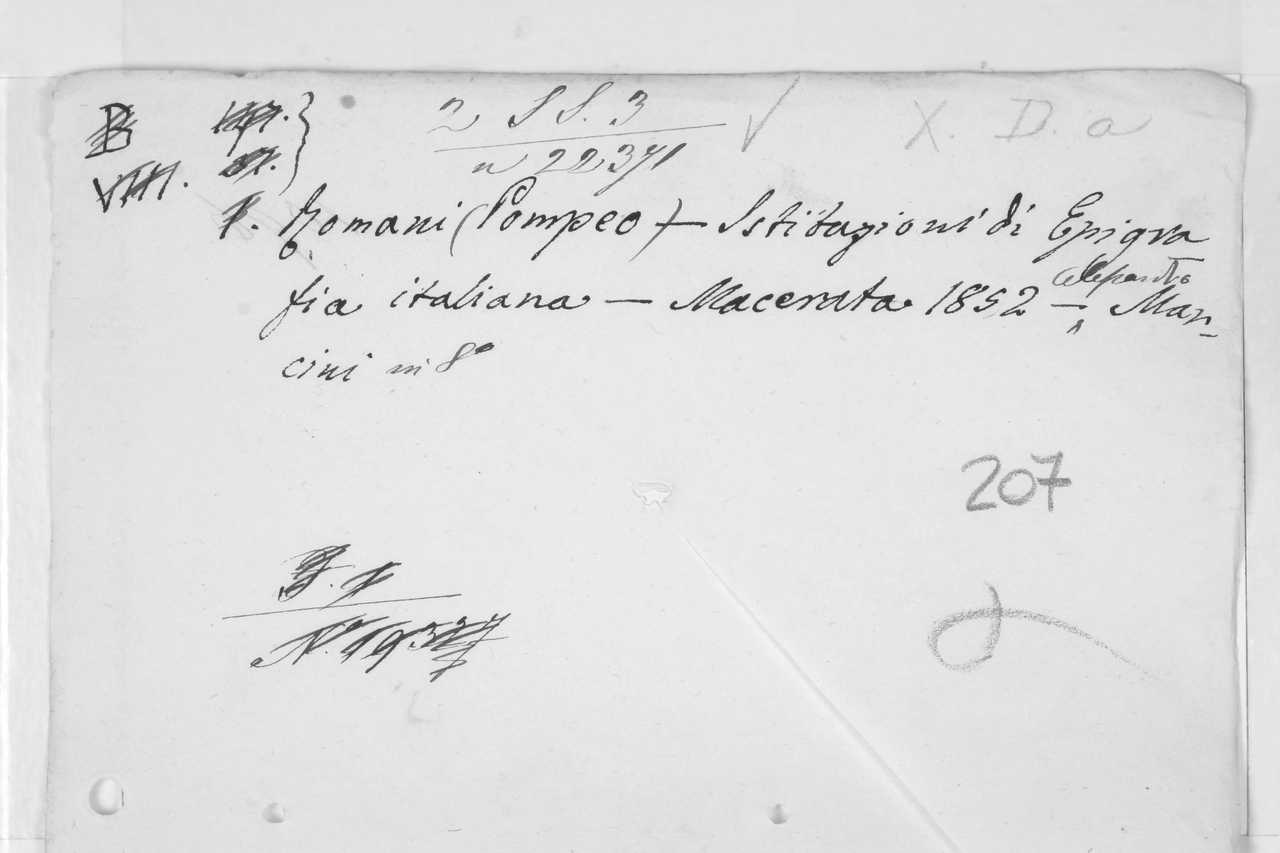 B
VIII.
2 S S. 3
n 22371
X. D. a
1. Romani (Pompeo) — Istituzioni di Epigra
fia italiana — Macerata 1852 — Alessandro Man-
cini in 8°
207
N.° 19327